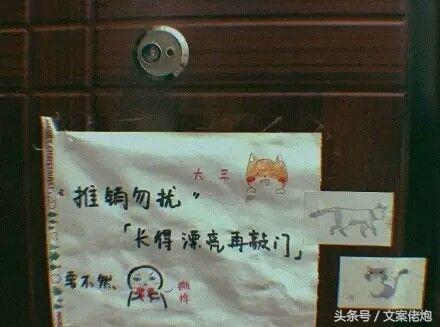 大 三
"推销勿扰"
「长得漂亮再敲门」
要不然、
撕榜
头条号 / 文案佬炮